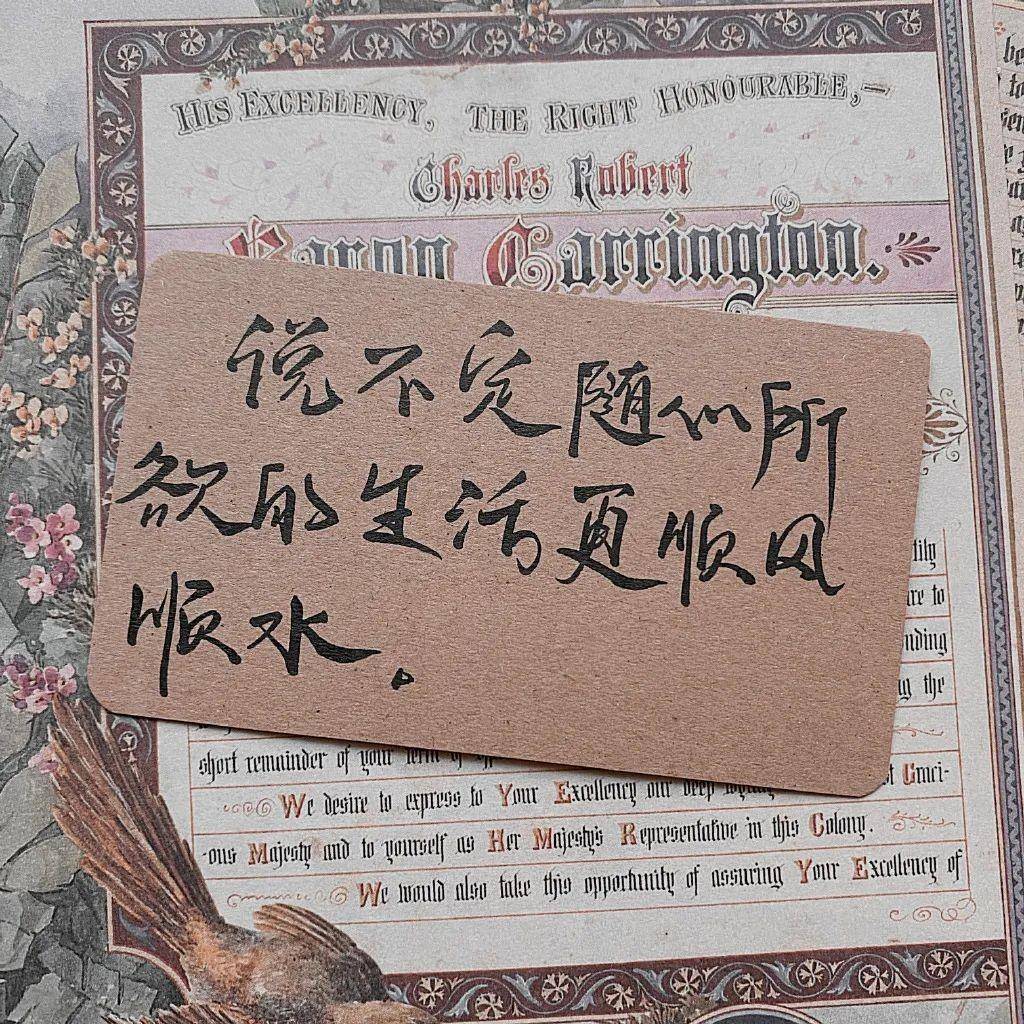 HIS EXCELLENCY, THE RIGHT HONOURABLE,—
Charles Robert
Baron Carrington.
说不定随心所
欲的生活更顺风
顺水。
short remainder of your term of
We desire to express to Your Excellency our deep Graci-
ous Majesty and to yourself as Her Majesty's Representative in this Colony.
We would also take this opportunity of assuring Your Excellency of
tily
re to
nding
the